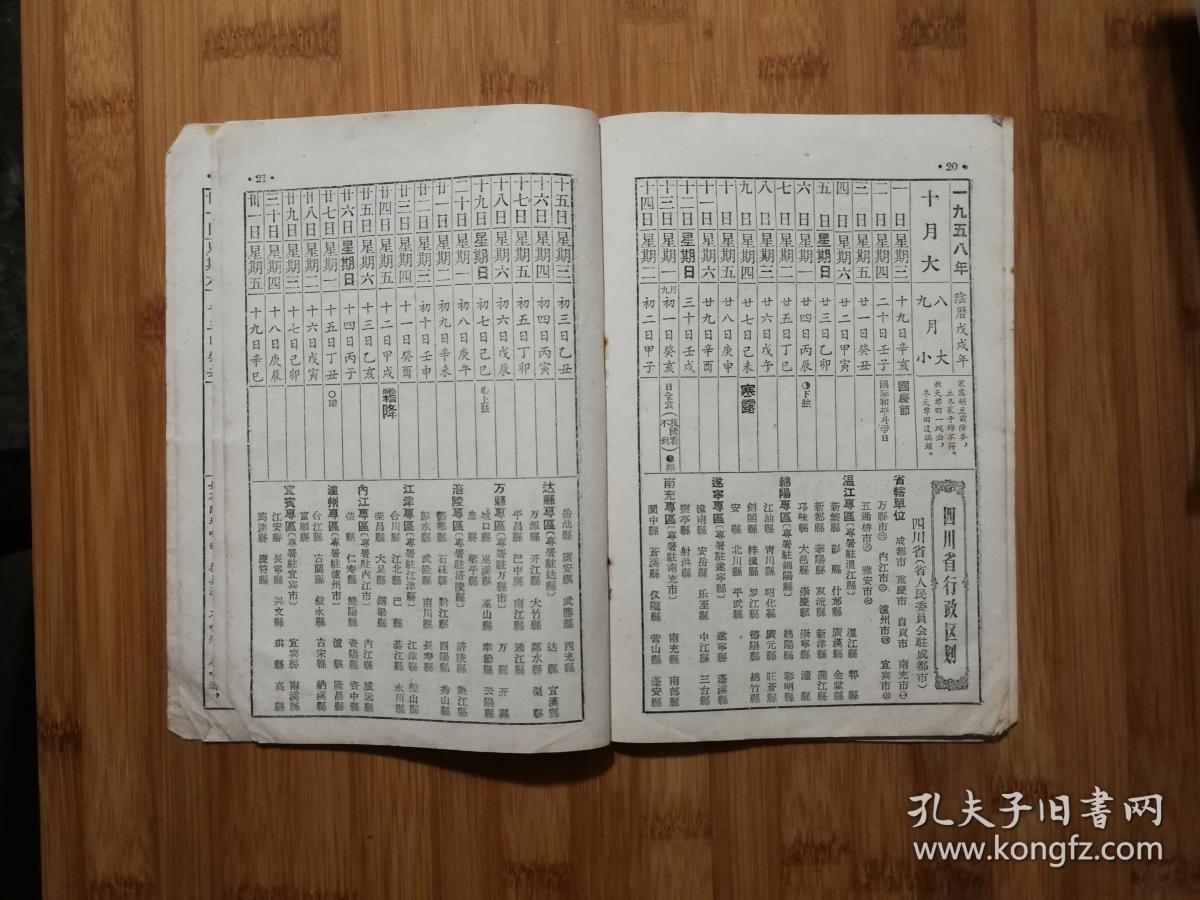 •20•
一九五八年
陰曆戊戌年
十月大
八大
九月小
寒露胡豆霜降麥，
立冬菜子綿不得。
秋天犂田一碗油，
冬天犂田沒搞頭。
一日星期三 十九日辛亥 國慶節
二日星期四 二十日壬子 國际和平斗爭日
三日星期五 廿一日癸丑
四日星期六 廿二日甲寅
五日星期日 廿三日乙卯
六日星期一 廿四日丙辰 下弦
七日星期二 廿五日丁巳
八日星期三 廿六日戊午
九日星期四 廿七日己未 寒露
十日星期五 廿八日庚申
十一日星期六 廿九日辛酉
十二日星期日 三十日壬戌
十三日星期一 九月初一日癸亥 日全食（我國看不到）朔
十四日星期二 初二日甲子
四川省行政区划
四川省（省人民委員会駐成都市）
省轄單位 成都市 重慶市 自貢市 南充市
万縣市 內江市 瀘州市 宜宾市
五通桥市 雅安市
温江專區（專署駐溫江縣） 溫江縣 郫縣
新繁縣 彭縣 什邡縣 廣漢縣 金堂縣
新都縣 華陽縣 双流縣 新津縣 蒲江縣
邛崍縣 大邑縣 崇慶縣 崇寧縣 灌縣
綿陽專區（專署駐綿陽縣） 綿陽縣 彰明縣
江油縣 青川縣 昭化縣 廣元縣 旺蒼縣
劍閣縣 梓潼縣 罗江縣 德陽縣 綿竹縣
安縣 北川縣 平武縣
遂寧專區（專署駐遂寧縣） 遂寧縣 蓬溪縣
潼南縣 安岳縣 乐至縣 中江縣 三台縣
鹽亭縣 射洪縣
南充專區（專署駐南充市） 南充縣 南部縣
閬中縣 蒼溪縣 仪隴縣 营山縣 蓬安縣
•21•
十五日星期三 初三日乙丑
十六日星期四 初四日丙寅
十七日星期五 初五日丁卯
十八日星期六 初六日戊辰
十九日星期日 初七日己巳 上弦
二十日星期一 初八日庚午
廿一日星期二 初九日辛未
廿二日星期三 初十日壬申
廿三日星期四 十一日癸酉
廿四日星期五 十二日甲戌 霜降
廿五日星期六 十三日乙亥
廿六日星期日 十四日丙子
廿七日星期一 十五日丁丑 望
廿八日星期二 十六日戊寅
廿九日星期三 十七日己卯
三十日星期四 十八日庚辰
卅一日星期五 十九日辛巳
岳池縣 廣安縣 武勝縣 西充縣
达縣專區（專署駐达縣） 达縣 宣漢縣
万源縣 开江縣 大竹縣 鄰水縣 渠縣
平昌縣 巴中縣 南江縣 通江縣
万縣專區（專署駐万縣市） 万縣 开縣
城口縣 巫溪縣 巫山縣 奉節縣 云陽縣
忠縣 梁平縣
涪陵專區（專署駐涪陵縣） 涪陵縣 墊江縣
酆都縣 石砫縣 黔江縣 酉陽縣 秀山縣
彭水縣 武隆縣 南川縣 長寿縣
江津專區（專署駐江津縣） 江津縣 璧山縣
合川縣 江北縣 巴縣 綦江縣 永川縣
榮昌縣 大足縣 銅梁縣
內江專區（專署駐內江市） 內江縣 威远縣
榮縣 仁寿縣 簡陽縣 資陽縣 資中縣
瀘州專區（專署駐瀘州市） 瀘縣 隆昌縣
合江縣 古藺縣 敍永縣 古宋縣 納溪縣
富順縣
宜宾專區（專署駐宜宾市） 宜宾縣 南溪縣
江安縣 長寧縣 兴文縣 珙縣 高縣
筠連縣 慶符縣
孔夫子旧书网
www.kongfz.com